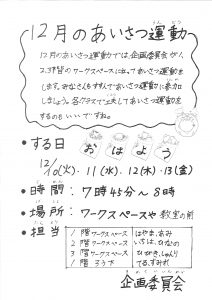 12月のあいさつ運動
12月のあいさつ運動では、企画委員会が1、
2、3階のワークスペースに立ってあいさつ運動を
します。みなさんもすすんであいさつ運動に参加
しましょう。各クラスで工夫してあいさつ運動を
するのもいいですね。
・する日
おはよう
12/10(火)・11(水)、12(木)・13(金)
・時間：7時45分〜8時
・場所：ワークスペースや教室の前
・担当
1階ワークスペース
2階ワークスペース
3階ワークスペース
1階ろうか
企画委員会